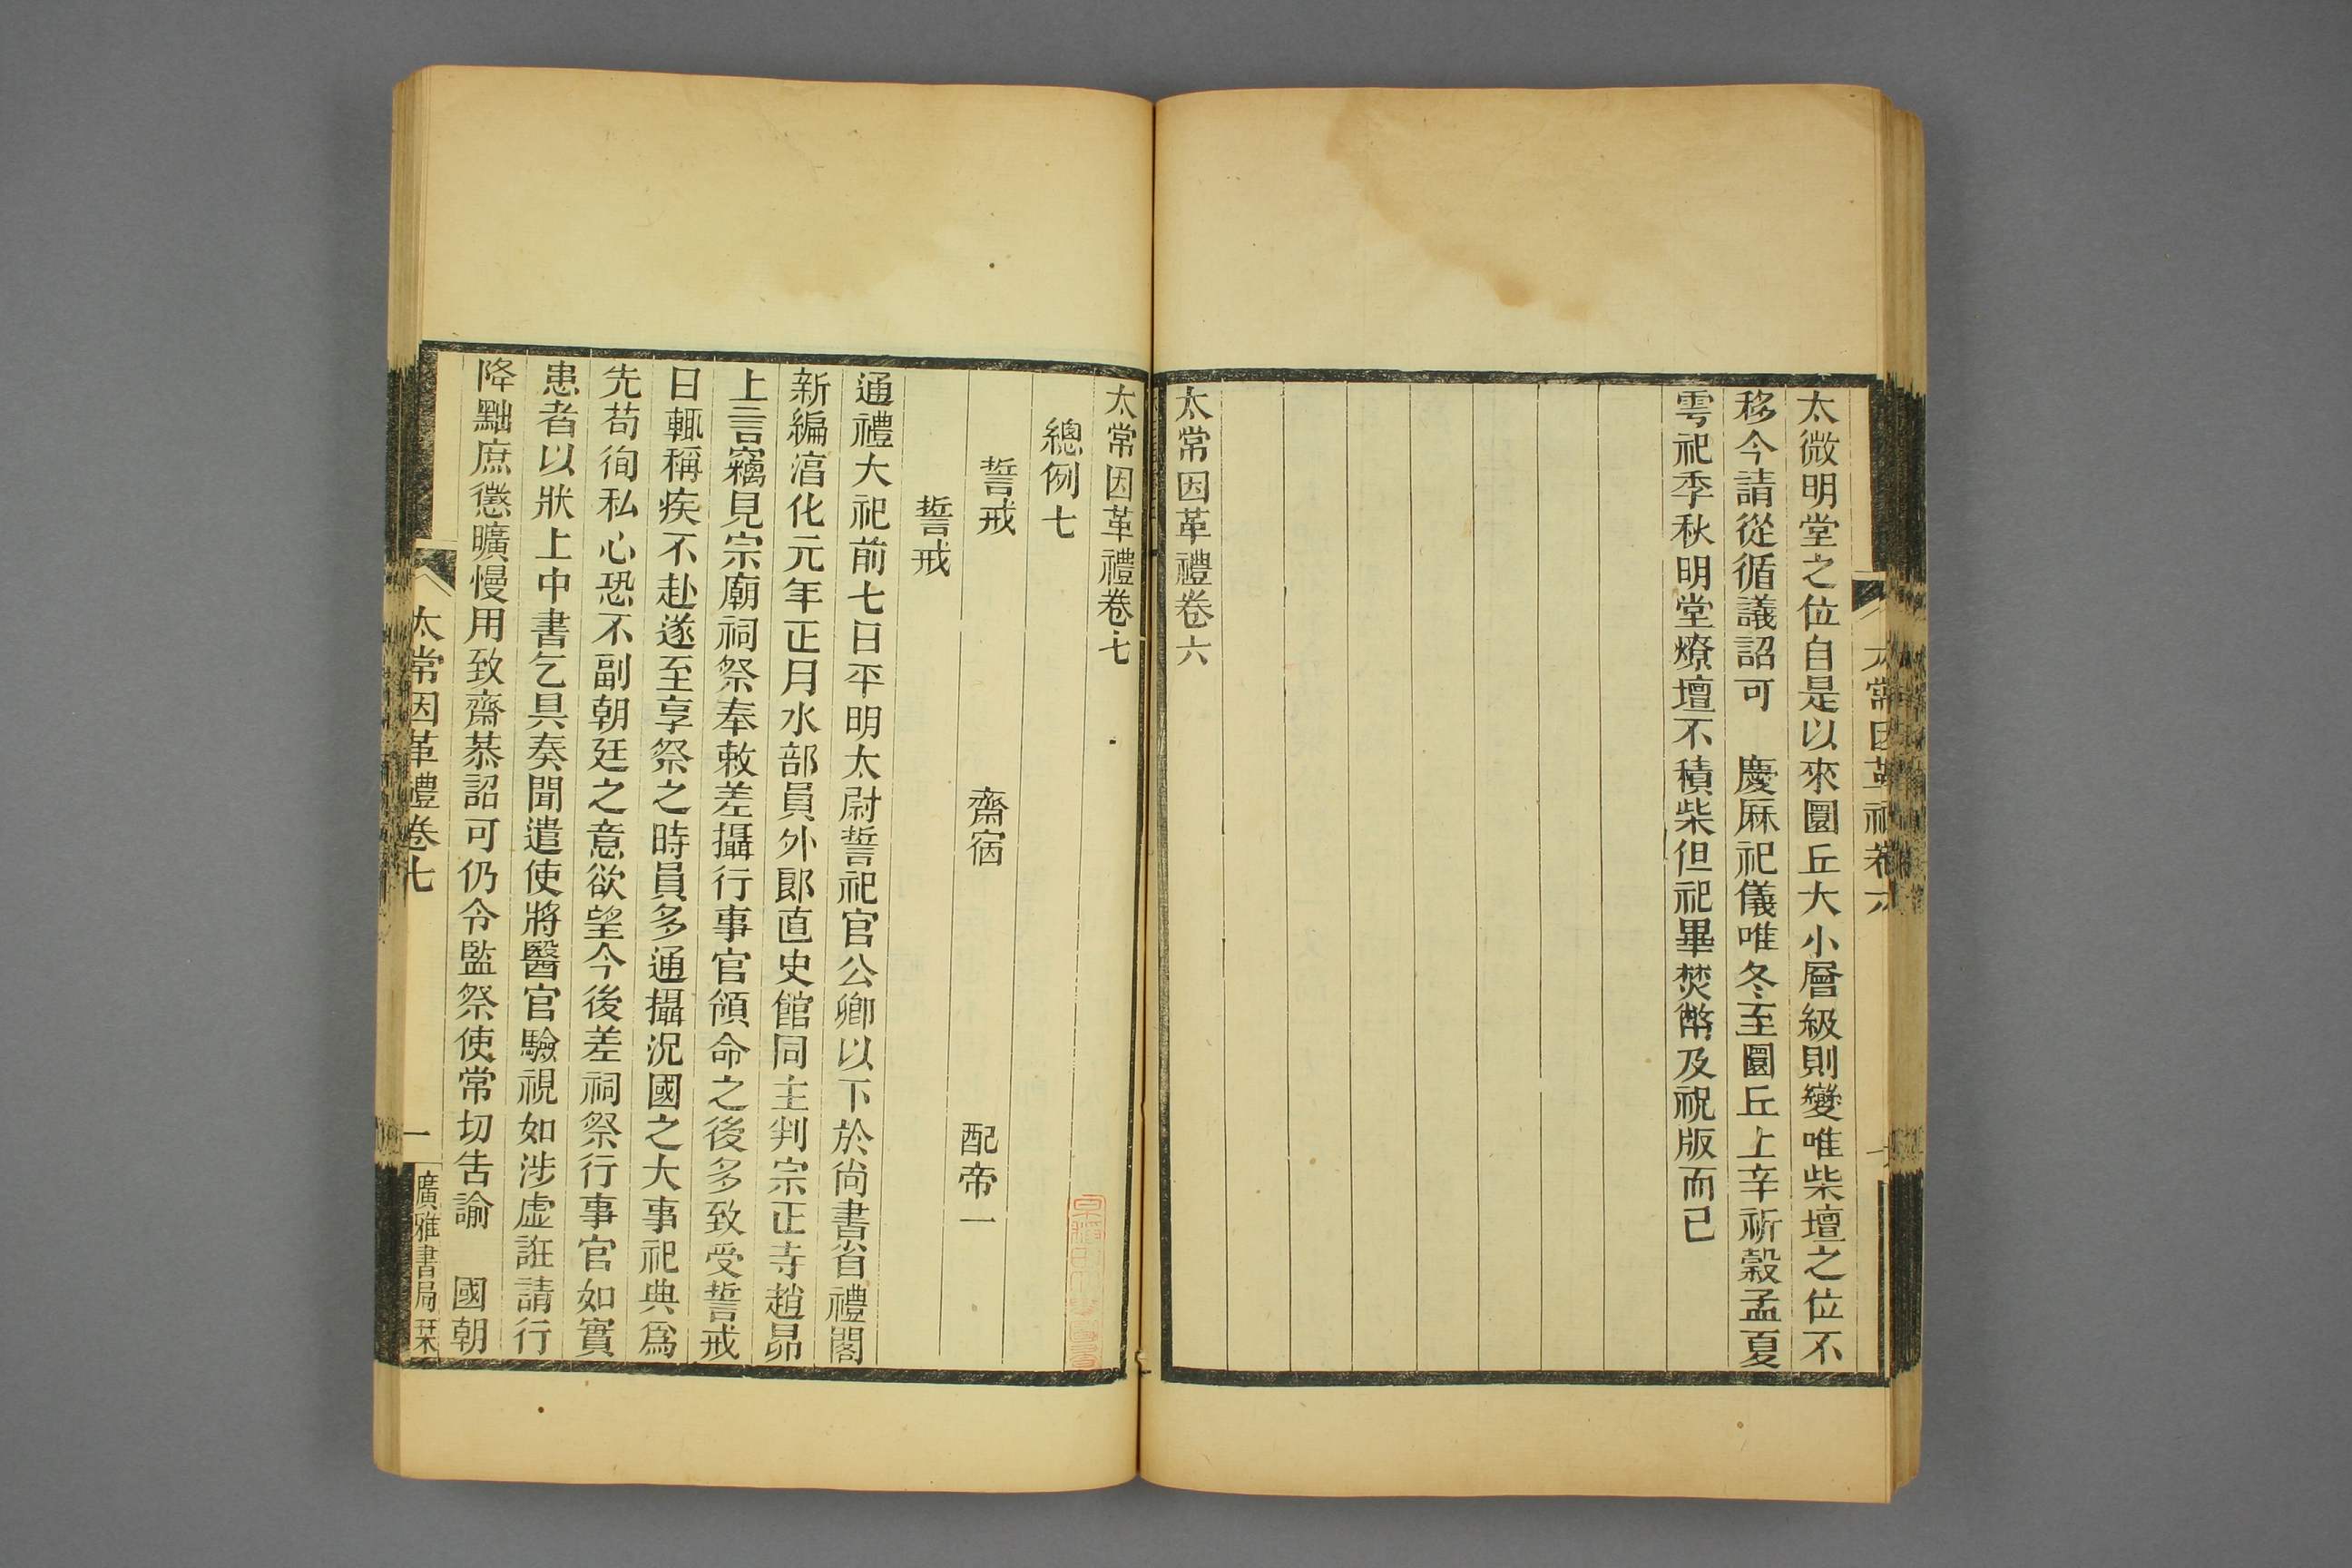 太微明堂之位自是以來圜丘大小層級則變唯柴壇之位不
移今請從循議詔可　慶厤祀儀唯冬至圜丘上辛祈穀孟夏
雩祀季秋明堂燎壇不積柴但祀畢焚幣及祝版而已
太常因革禮卷六
太常因革禮卷七
總例七
誓戒　齋宿　配帝一
誓戒
通禮大祀前七日平明太尉誓祀官公卿以下於尚書省禮閣
新編淳化元年正月水部員外郎直史館同主判宗正寺趙昂
上言竊見宗廟祠祭奉敕差攝行事官領命之後多致受誓戒
日輒稱疾不赴遂至享祭之時員多通攝況國之大事祀典爲
先苟徇私心恐不副朝廷之意欲望今後差祠祭行事官如實
患者以狀上中書乞具奏聞遣使將醫官驗視如涉虛誑請行
降黜庶懲曠慢用致齋恭詔可仍令監祭使常切告諭　國朝
太常因革禮卷七
一
廣雅書局栞